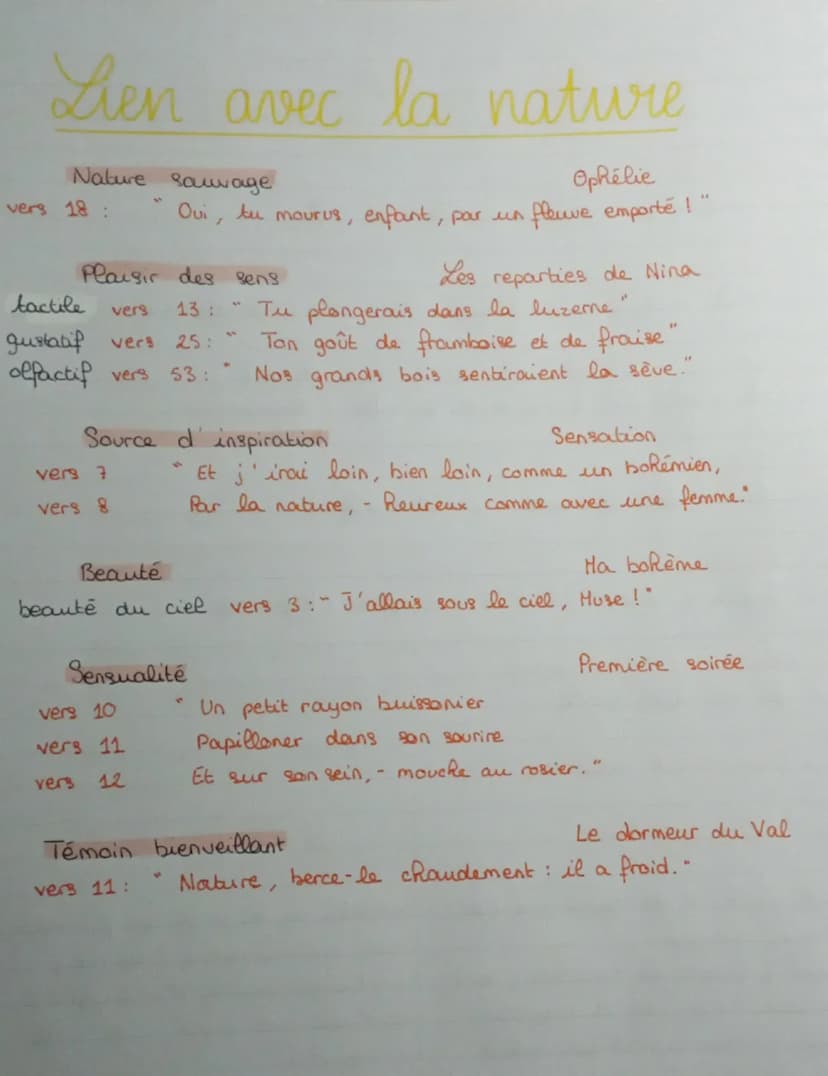 Lien avec la nature
Nature sauvage Ophélie
vers 18 : " Oui, tu mourus, enfant, par un fleuve emporté ! "
Plaisir des sens Les reparties de Nina
tactile vers 13 : " Tu plongerais dans la luzerne "
gustatif vers 25 : " Ton goût de framboise et de fraise "
olfactif vers 53 : " Nos grands bois sentiraient la sève. "
Source d'inspiration Sensation
vers 7 " Et j'irai loin, bien loin, comme un bohémien,
vers 8 Par la nature, - Heureux comme avec une femme. "
Beauté Ma bohème
beauté du ciel vers 3 : " J'allais sous le ciel, Muse ! "
Sensualité Première soirée
vers 10 " Un petit rayon buissonier
vers 11 Papilloner dans son sourire
vers 12 Et sur son sein, - mouche au rosier. "
Témoin bienveillant Le dormeur du Val
vers 11 : " Nature, berce-le chaudement : il a froid. "